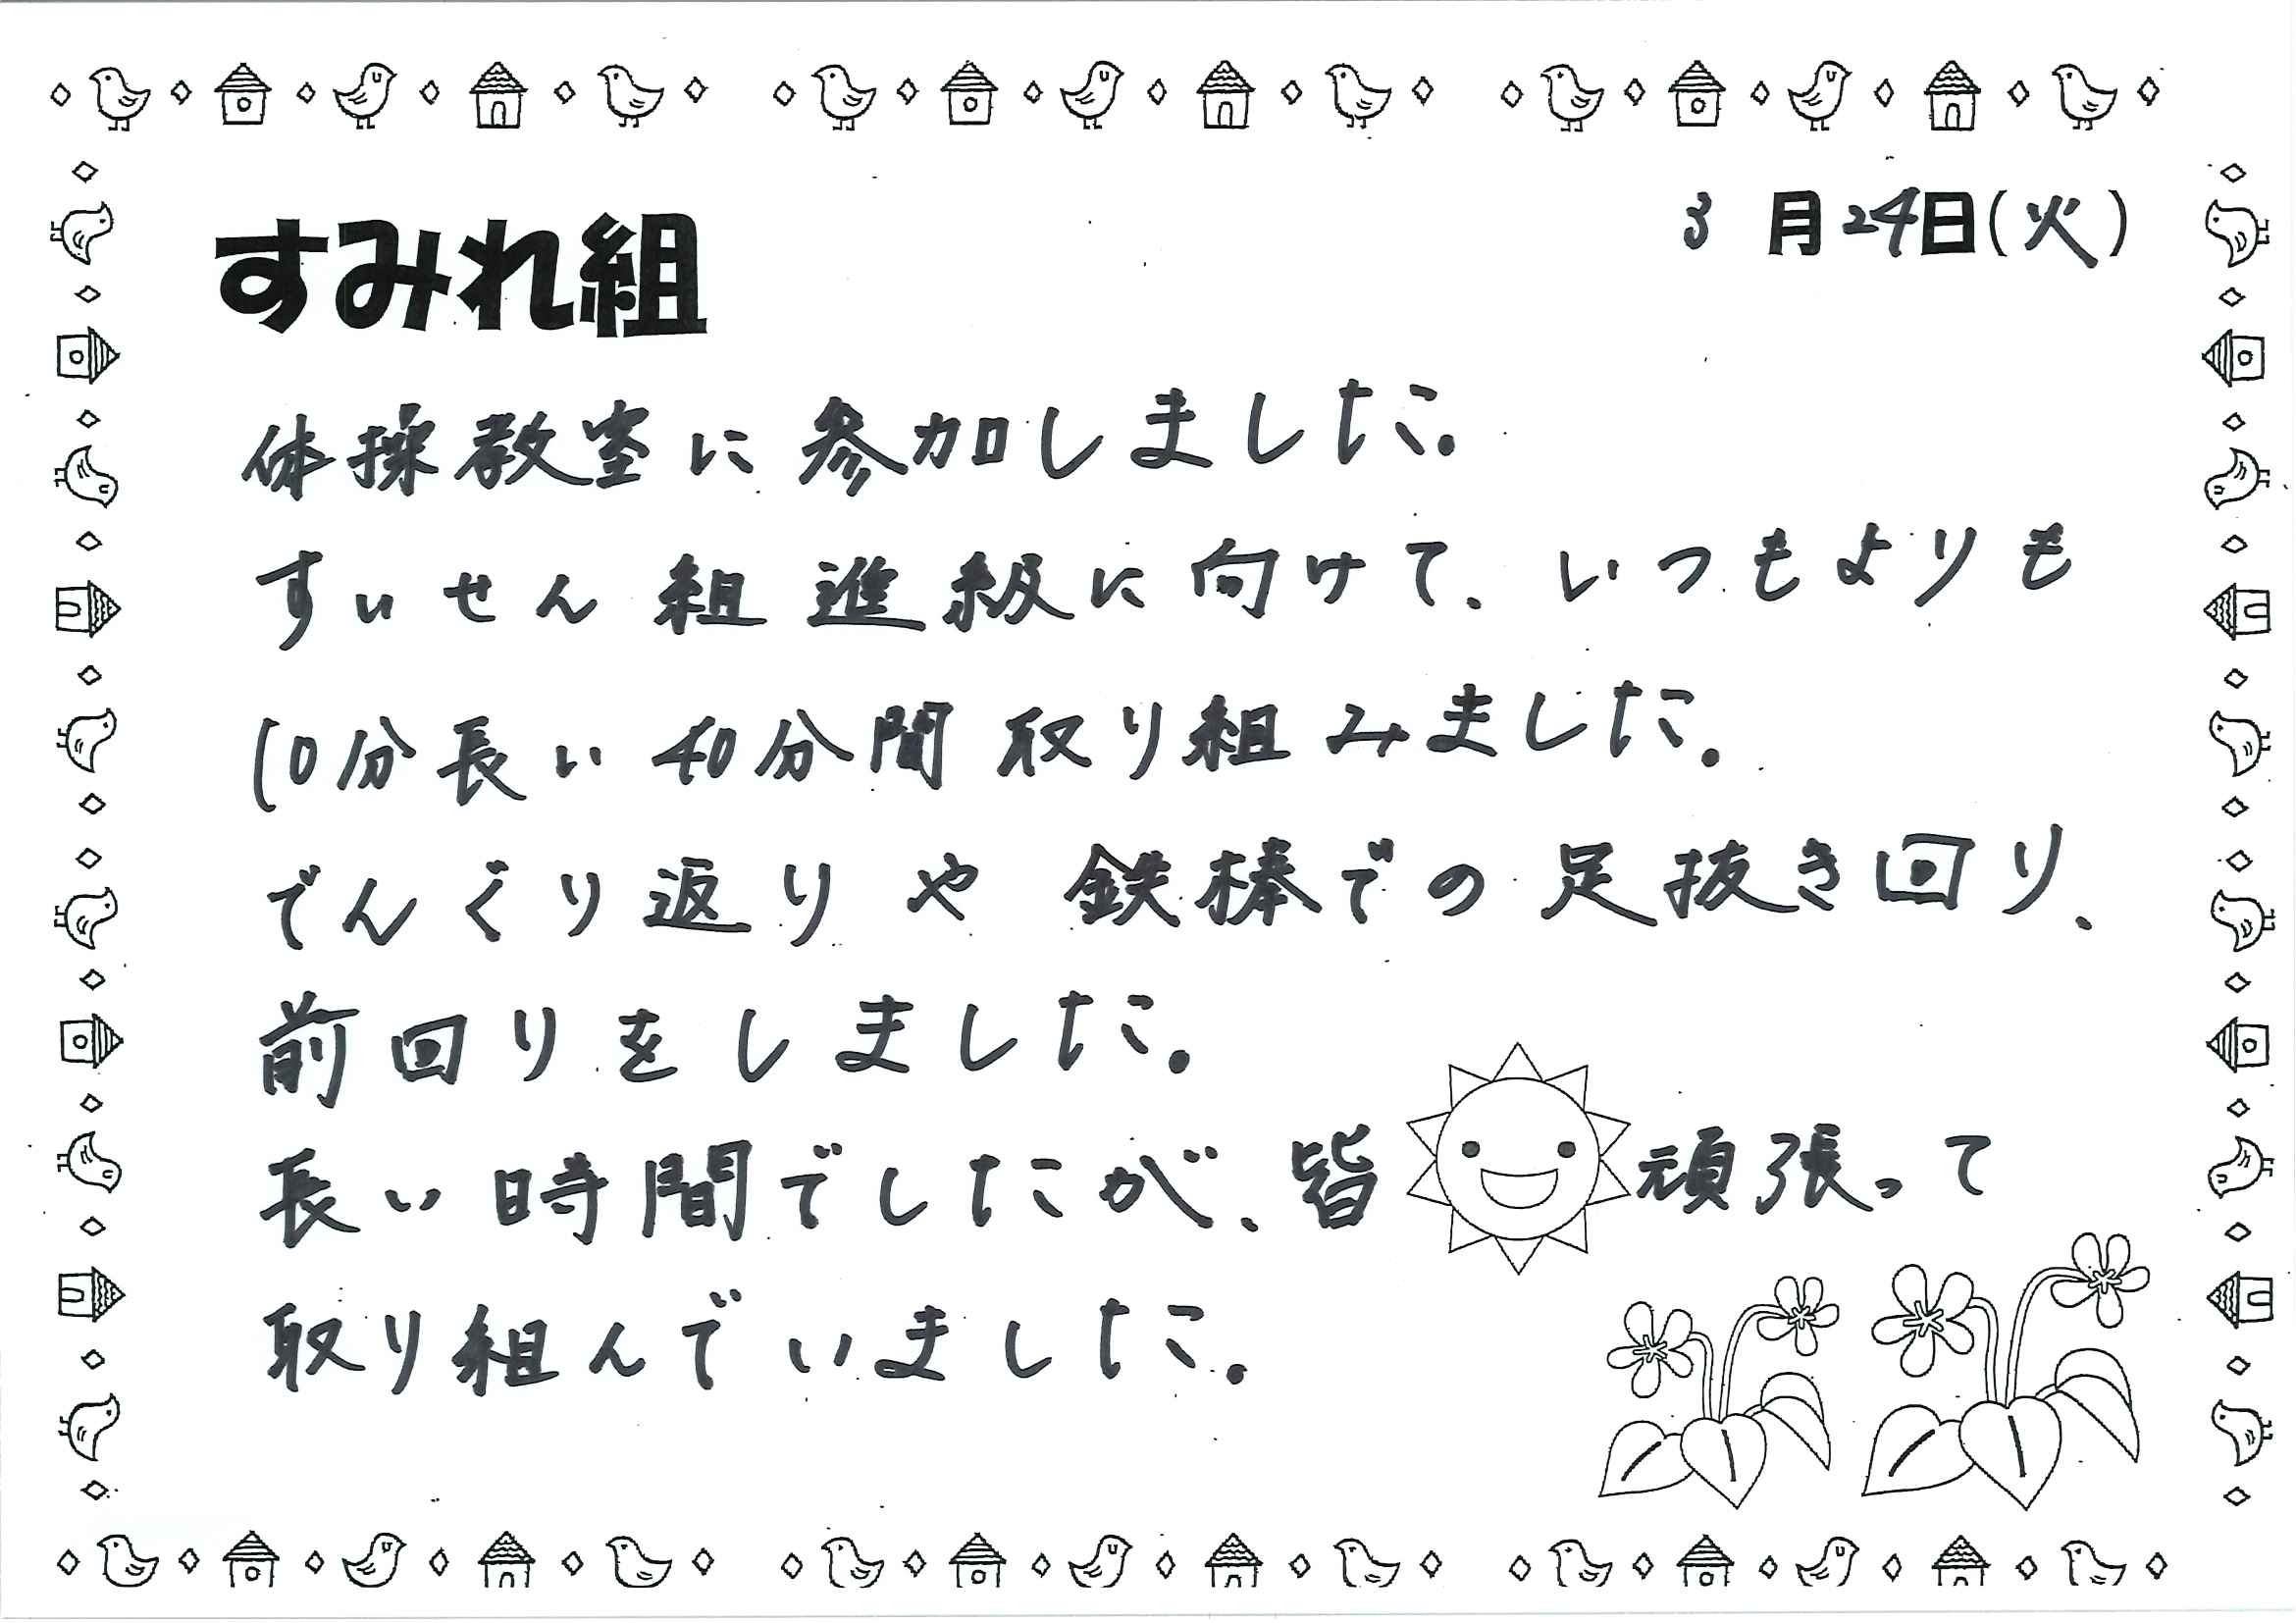 3月24日(火)
すみれ組
体操教室に参加しました。
すいせん組進級に向けて、いつもよりも
10分長い40分間取り組みました。
でんぐり返りや鉄棒での足抜き回り、
前回りをしました。
長い時間でしたが、皆頑張って
取り組んでいました。